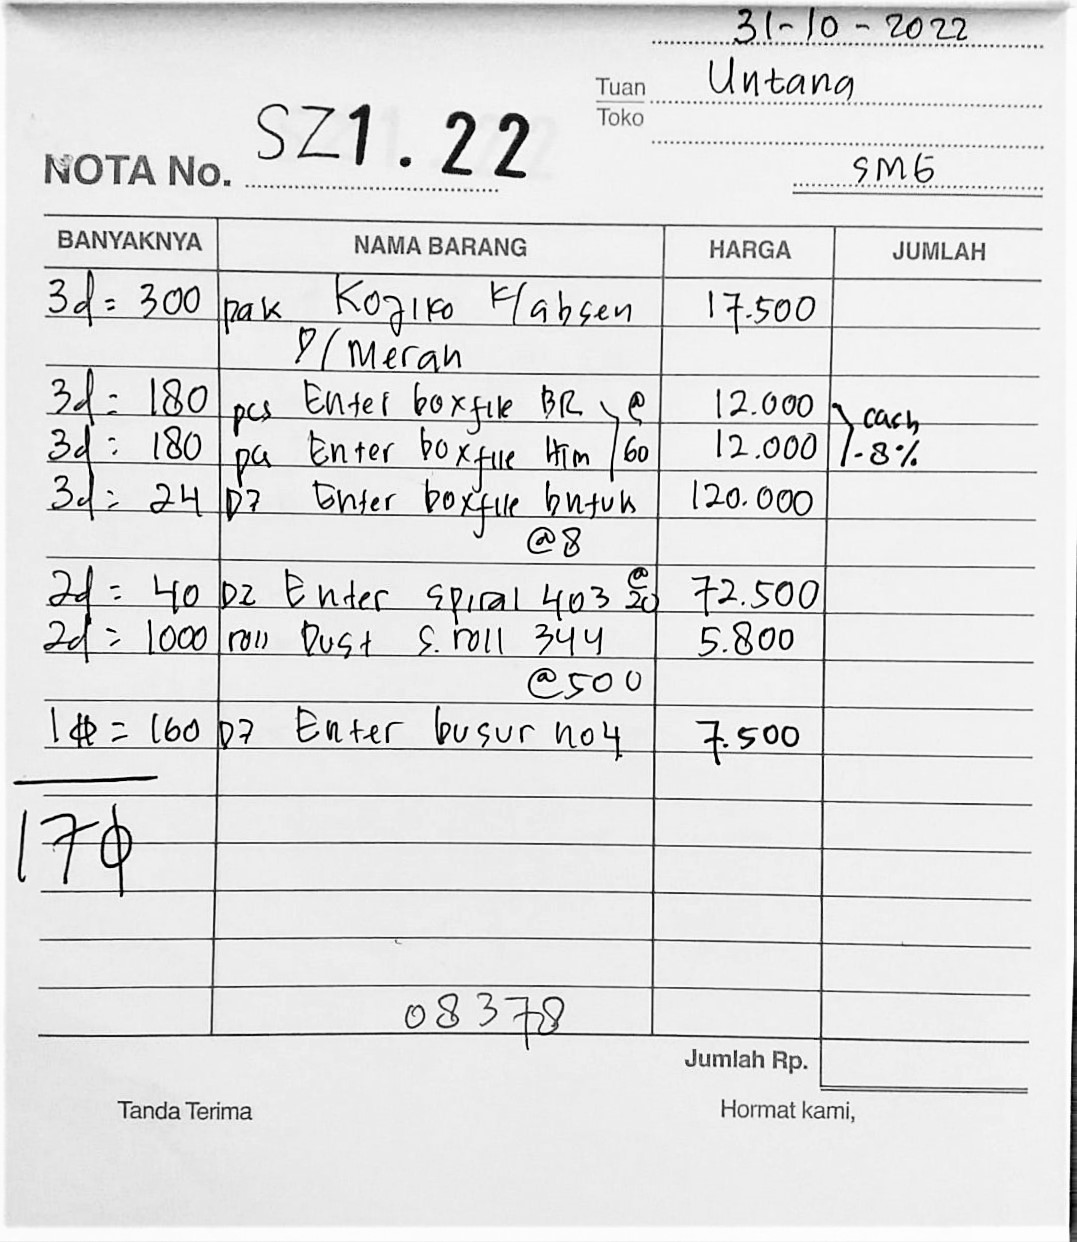 31-10-2022
Tuan Untang
Toko
SMG
NOTA No. SZ1.22
BANYAKNYA NAMA BARANG HARGA JUMLAH
3d = 300 pak Kojiko K/absen 17.500
P/Merah
3d = 180 pcs Enter boxfile BR @ 12.000 cash
3d = 180 pcs Enter boxfile Htm 60 12.000 -8%
3d = 24 DZ Enter boxfile bntuk 120.000
@8
2d = 40 DZ Enter spiral 403 @20 72.500
2d = 1000 roll Dust S. roll 344 5.800
@500
1 = 160 DZ Enter busur no4 7.500
17
08378
Jumlah Rp.
Tanda Terima Hormat kami,